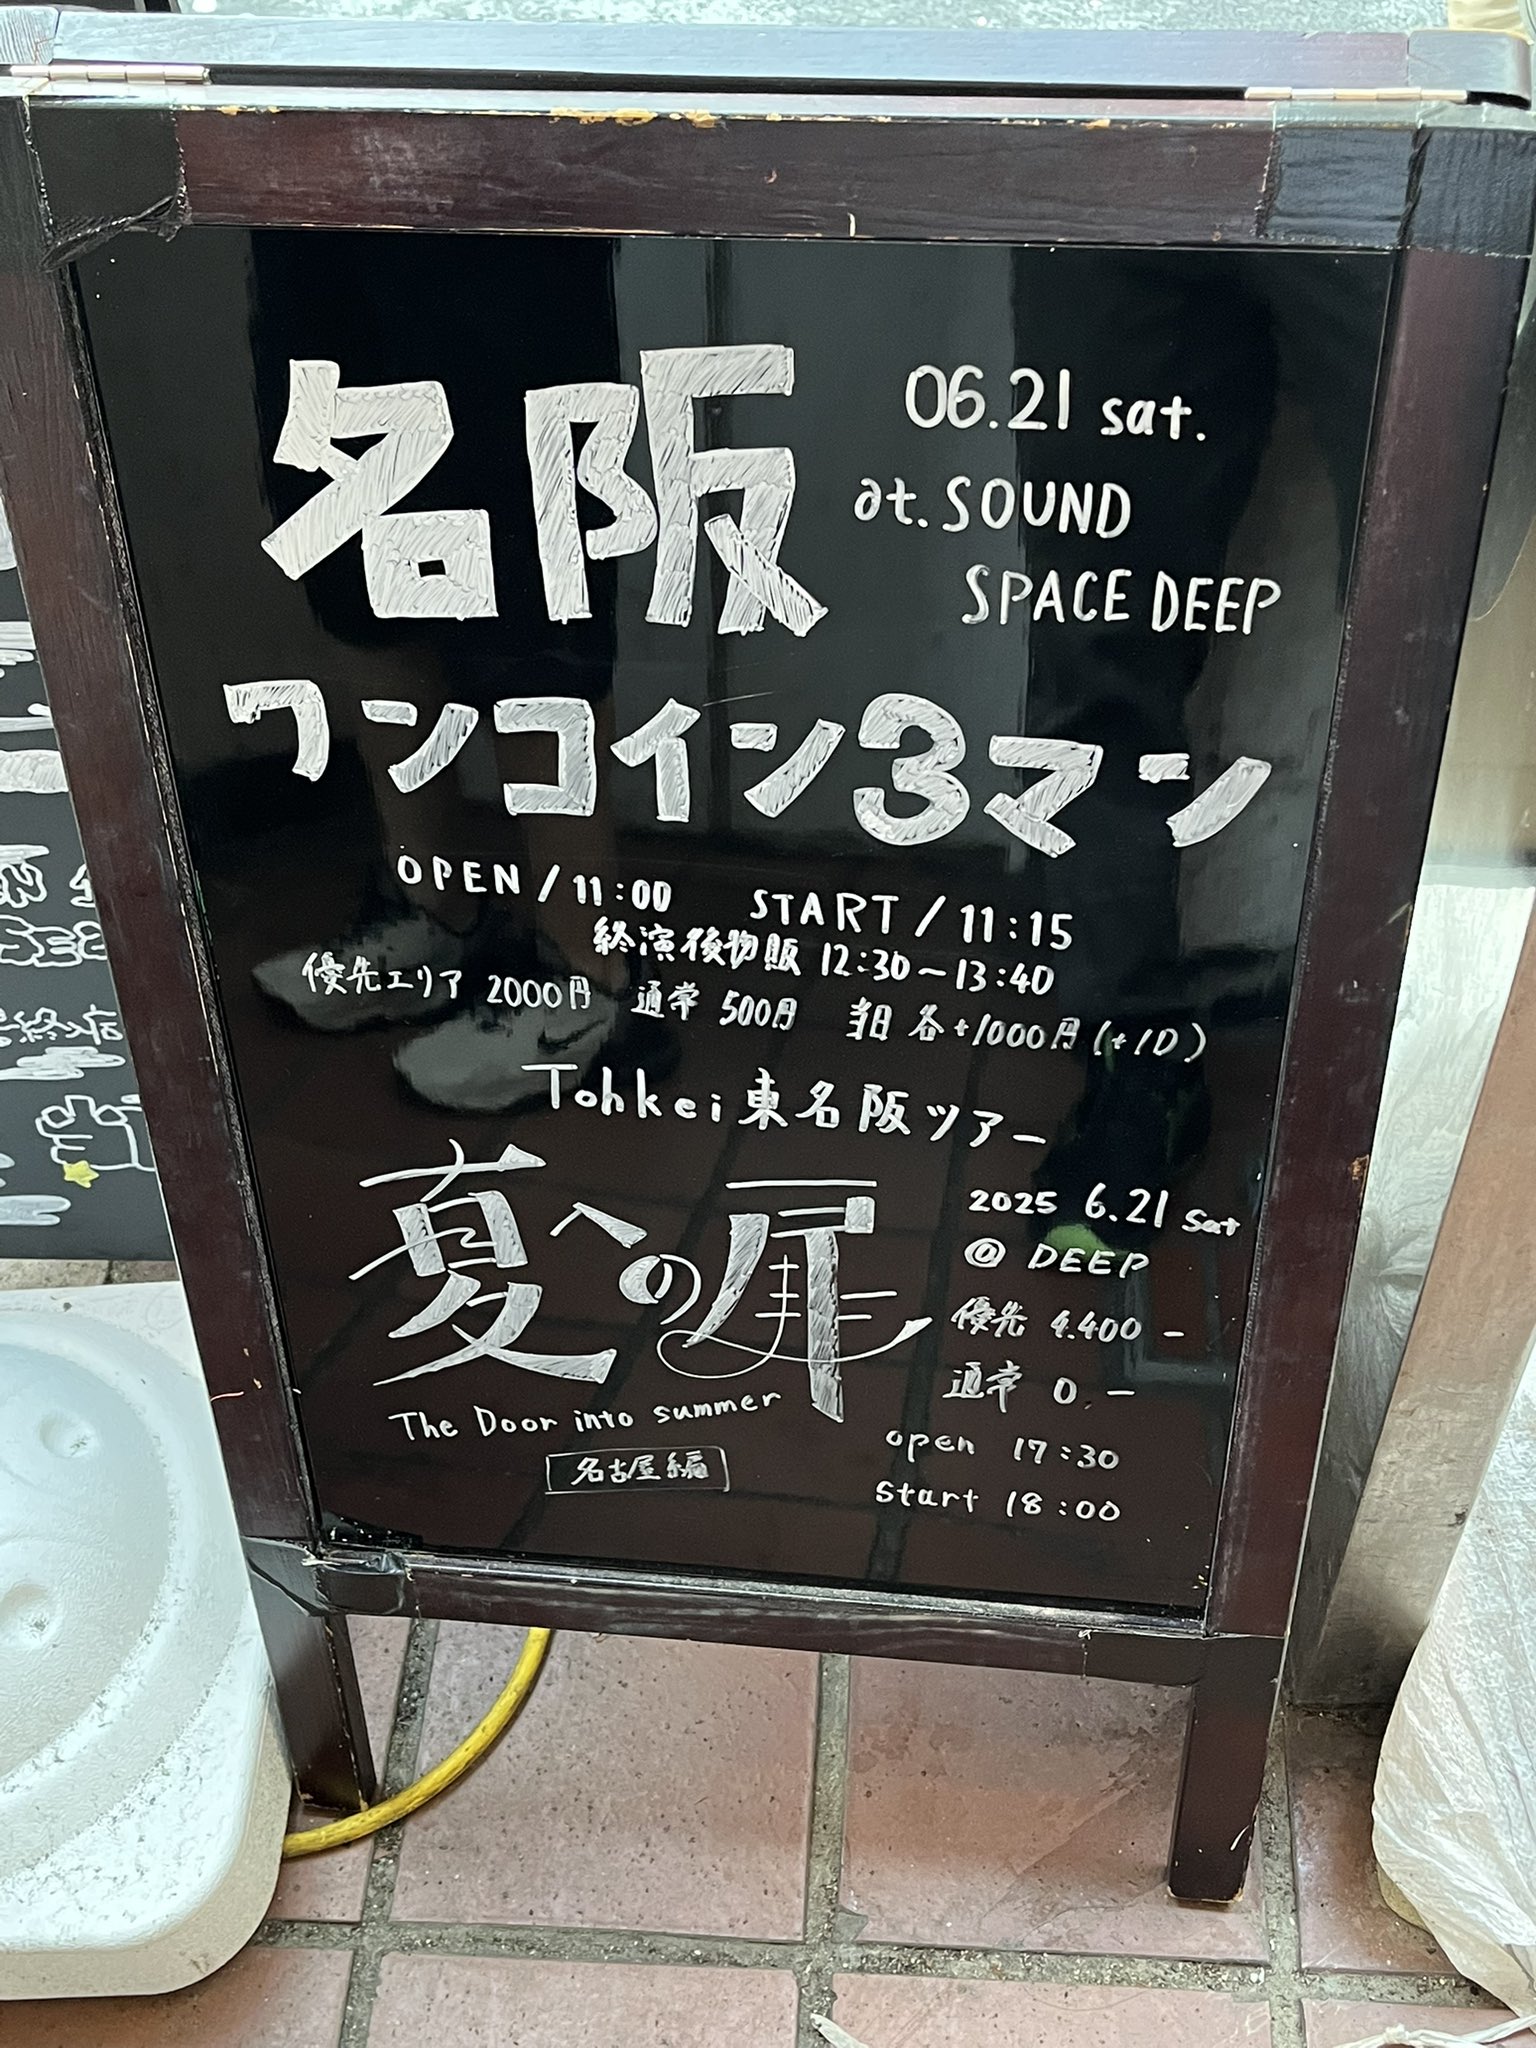 名阪
06.21 sat.
at. SOUND
SPACE DEEP
ワンコイン3マン
OPEN / 11:00 START / 11:15
終演後物販 12:30~13:40
優先エリア 2000円 通常 500円 当日 各+1000円(+1D)
Tohkei東名阪ツアー
夏への扉
The Door into summer
名古屋編
2025 6.21 sat
@ DEEP
優先 4.400 -
通常 0. -
open 17:30
start 18:00